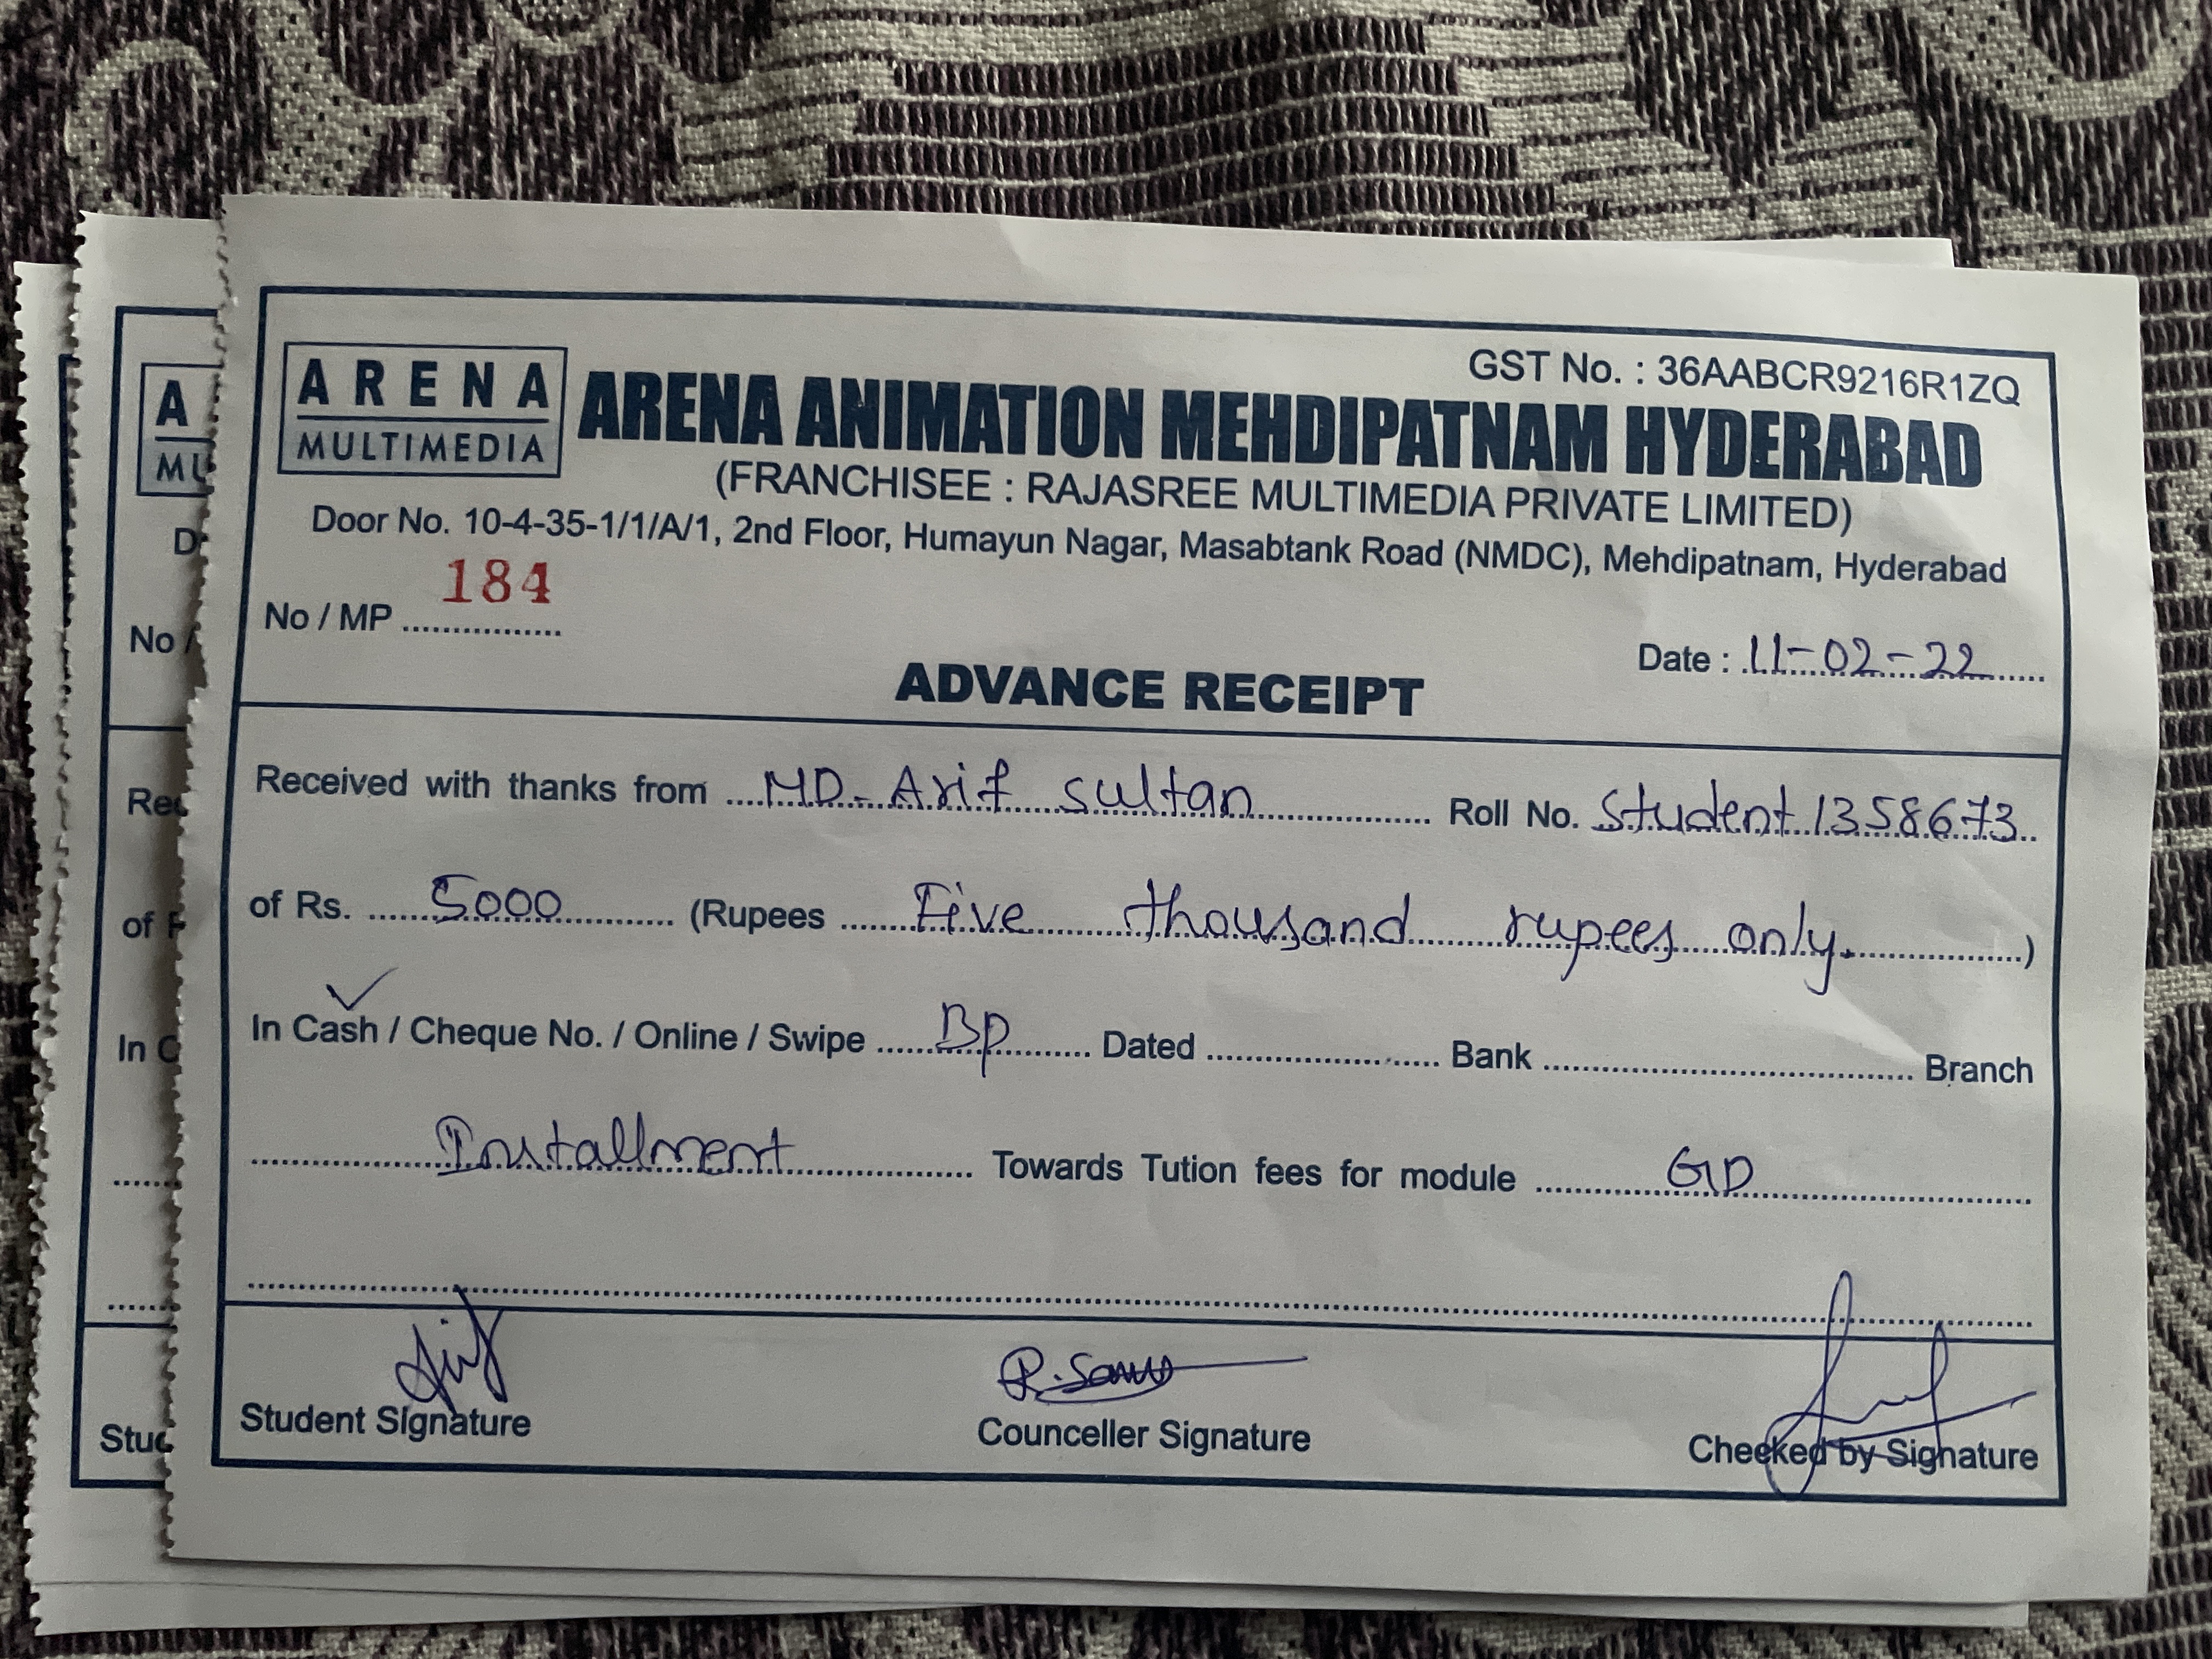 GST No. : 36AABCR9216R1ZQ
ARENA
MULTIMEDIA
ARENA ANIMATION MEHDIPATNAM HYDERABAD
(FRANCHISEE : RAJASREE MULTIMEDIA PRIVATE LIMITED)
Door No. 10-4-35-1/1/A/1, 2nd Floor, Humayun Nagar, Masabtank Road (NMDC), Mehdipatnam, Hyderabad
No / MP ................ 184
Date : 11-02-22
ADVANCE RECEIPT
Received with thanks from MD. Arif sultan Roll No. Student 1358673
of Rs. 5000 (Rupees Five thousand rupees only. )
In Cash / Cheque No. / Online / Swipe BP Dated ........................ Bank ........................ Branch
Installment Towards Tution fees for module GD
Student Signature
Counceller Signature
Checked by Signature